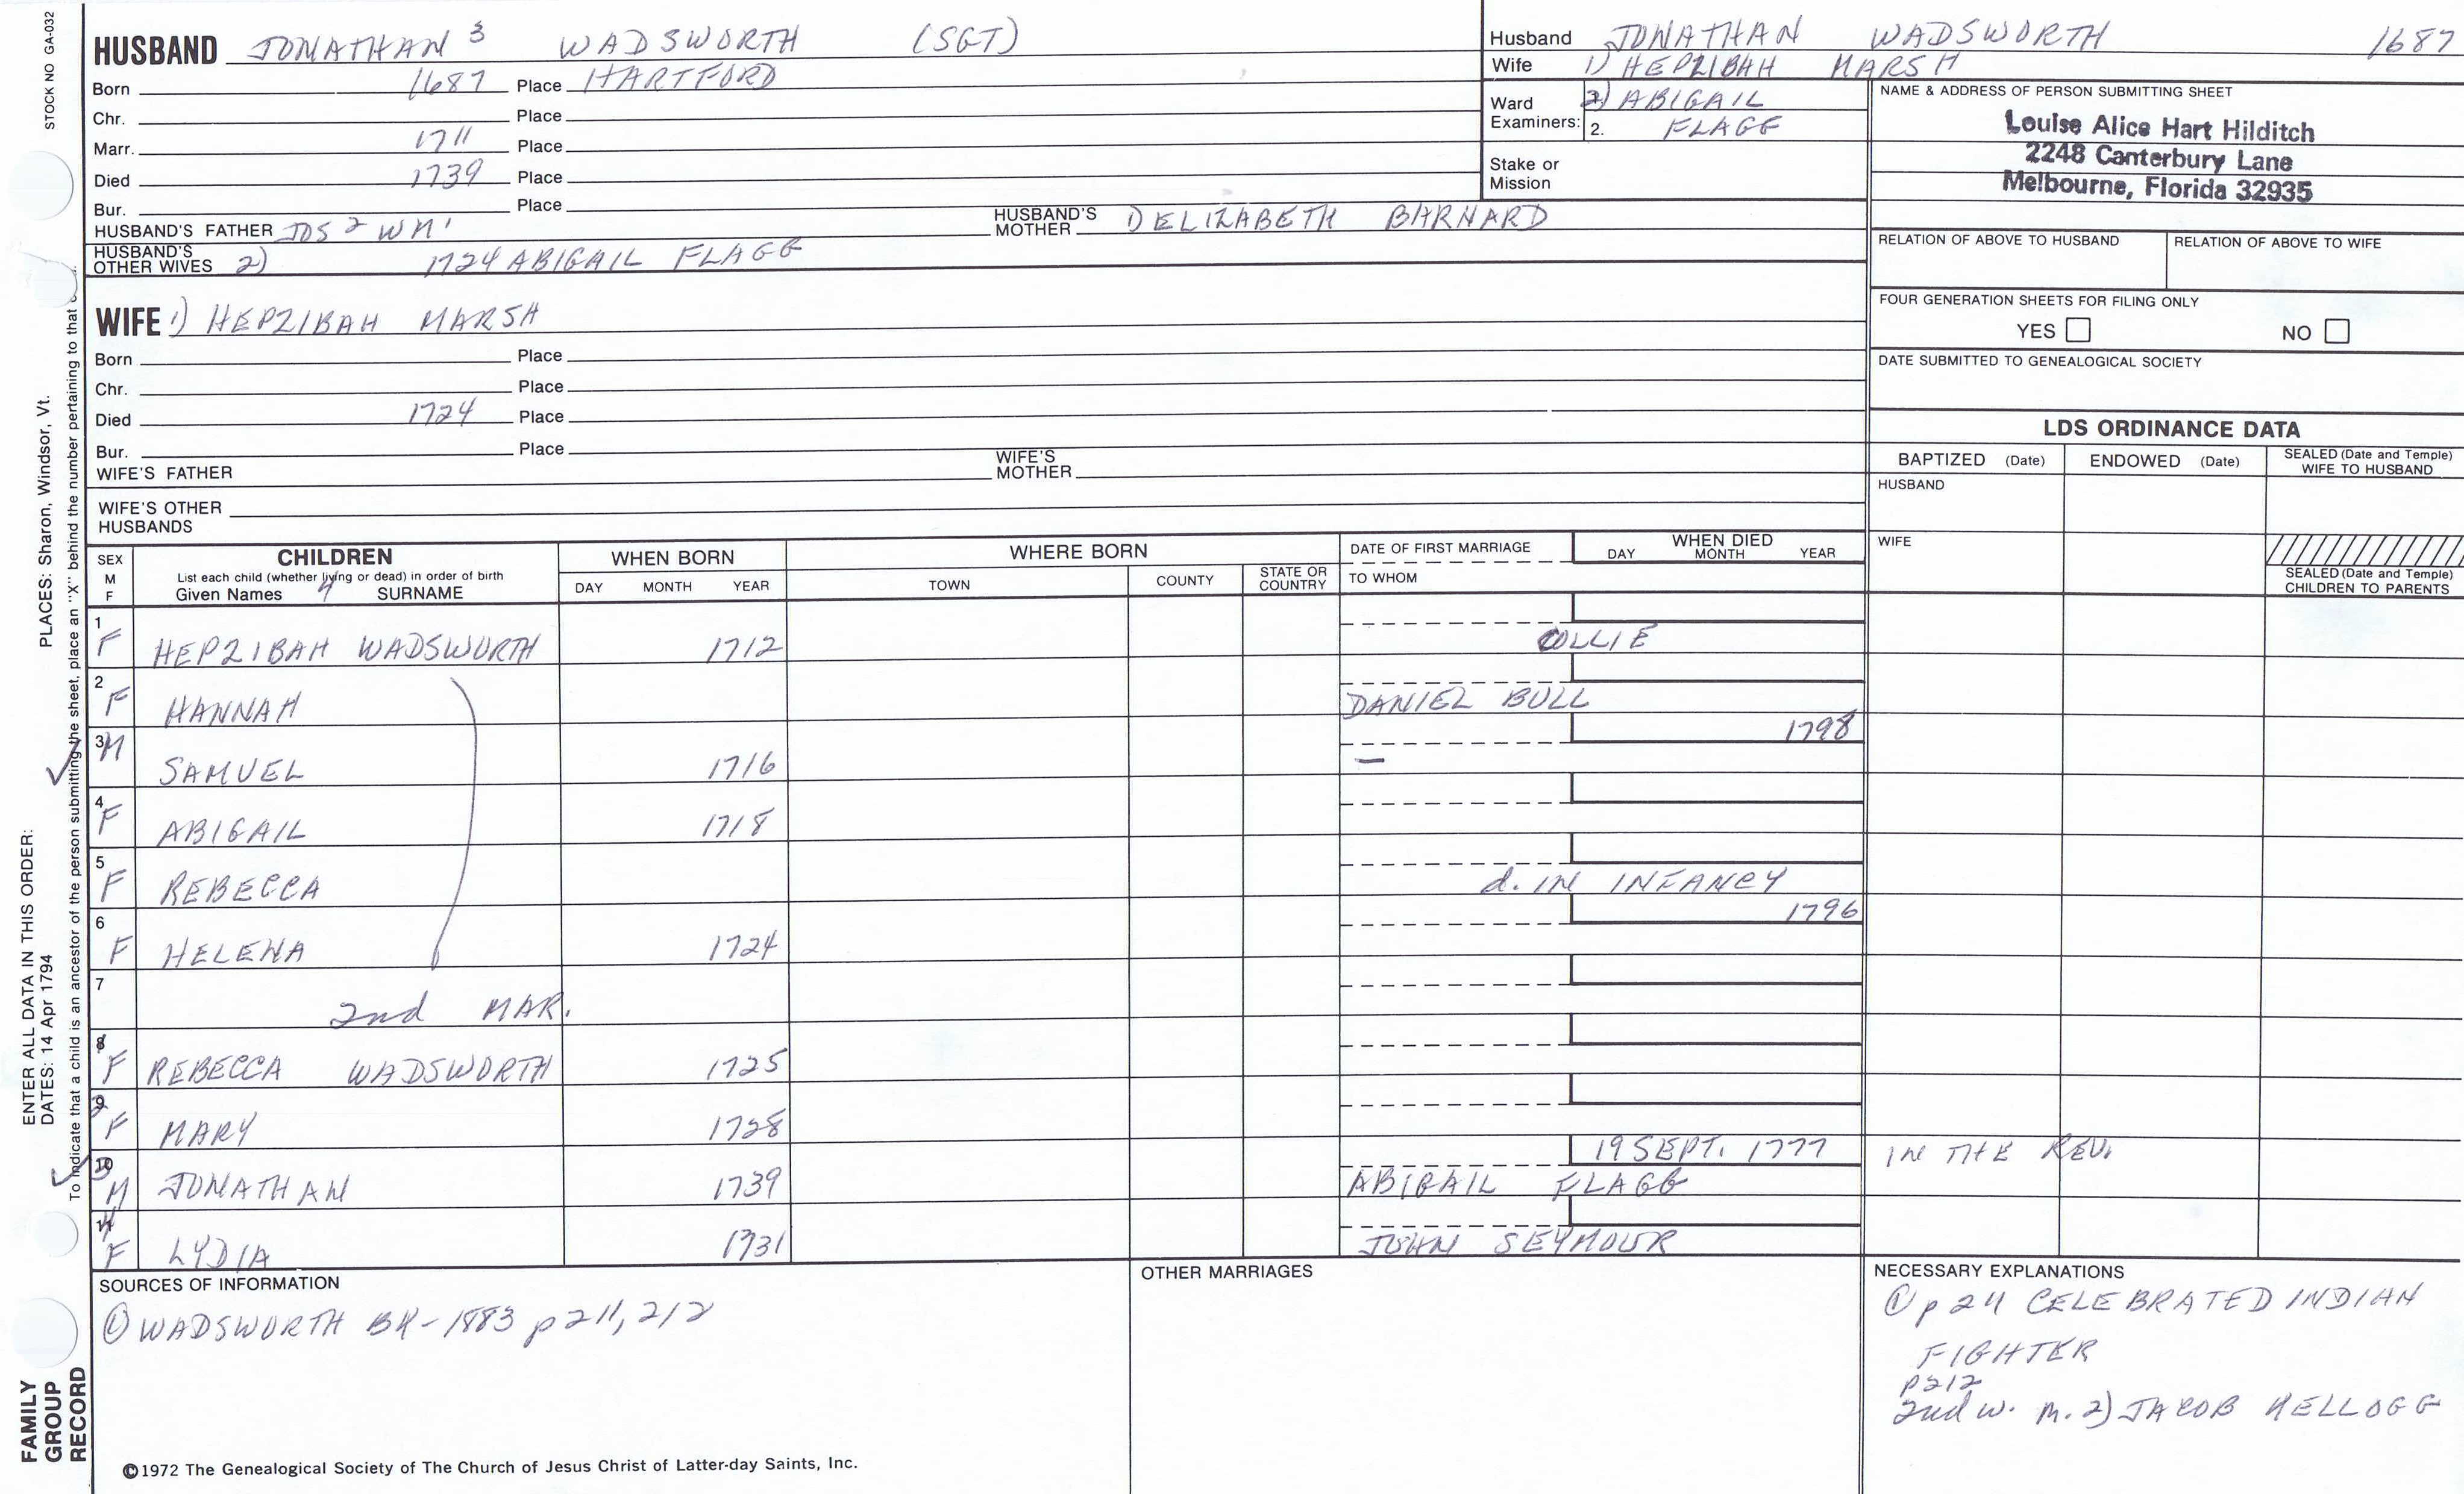 STOCK NO GA-032
HUSBAND JONATHAN 3 WADSWORTH (SGT)
Born 1687 Place HARTFORD
Chr. Place
Marr. 1711 Place
Died 1739 Place
Bur. Place
HUSBAND'S FATHER JOS 2 WM 1 HUSBAND'S MOTHER 1) ELIZABETH BARNARD
HUSBAND'S OTHER WIVES 2) 1724 ABIGAIL FLAGG
WIFE 1) HEPZIBAH MARSH
Born Place
Chr. Place
Died 1724 Place
Bur. Place
WIFE'S FATHER WIFE'S MOTHER
WIFE'S OTHER HUSBANDS
Husband JONATHAN WADSWORTH 1687
Wife 1) HEPZIBAH MARSH
Ward Examiners: 2) ABIGAIL
2. FLAGG
Stake or Mission
NAME & ADDRESS OF PERSON SUBMITTING SHEET
Louise Alice Hart Hilditch
2248 Canterbury Lane
Melbourne, Florida 32935
RELATION OF ABOVE TO HUSBAND RELATION OF ABOVE TO WIFE
FOUR GENERATION SHEETS FOR FILING ONLY
YES NO
DATE SUBMITTED TO GENEALOGICAL SOCIETY
LDS ORDINANCE DATA
BAPTIZED (Date) ENDOWED (Date) SEALED (Date and Temple) WIFE TO HUSBAND
HUSBAND
WIFE
SEALED (Date and Temple) CHILDREN TO PARENTS
SEX M F
CHILDREN
List each child (whether living or dead) in order of birth
Given Names SURNAME
WHEN BORN
DAY MONTH YEAR
WHERE BORN
TOWN COUNTY STATE OR COUNTRY
DATE OF FIRST MARRIAGE
TO WHOM
WHEN DIED
DAY MONTH YEAR
1 F HEPZIBAH WADSWORTH 1712 COLLIE
2 F HANNAH DANIEL BULL
3 M SAMUEL 1716 — 1798
4 F ABIGAIL 1718
5 F REBECCA d. IN INFANCY
6 F HELENA 1724 1796
7 2nd MAR.
8 F REBECCA WADSWORTH 1725
9 F MARY 1728
10 M JONATHAN 1739 19 SEPT. 1777 IN THE REV.
ABIGAIL FLAGG
11 F LYDIA 1731 JOHN SEYMOUR
SOURCES OF INFORMATION
① WADSWORTH BK - 1883 p 211, 212
OTHER MARRIAGES
NECESSARY EXPLANATIONS
① p 211 CELEBRATED INDIAN
FIGHTER
p212
2nd w. m. 2) JACOB KELLOGG
©1972 The Genealogical Society of The Church of Jesus Christ of Latter-day Saints, Inc.
FAMILY
GROUP
RECORD
ENTER ALL DATA IN THIS ORDER:
DATES: 14 Apr 1794 PLACES: Sharon, Windsor, Vt.
To indicate that a child is an ancestor of the person submitting the sheet, place an "X" behind the number pertaining to that